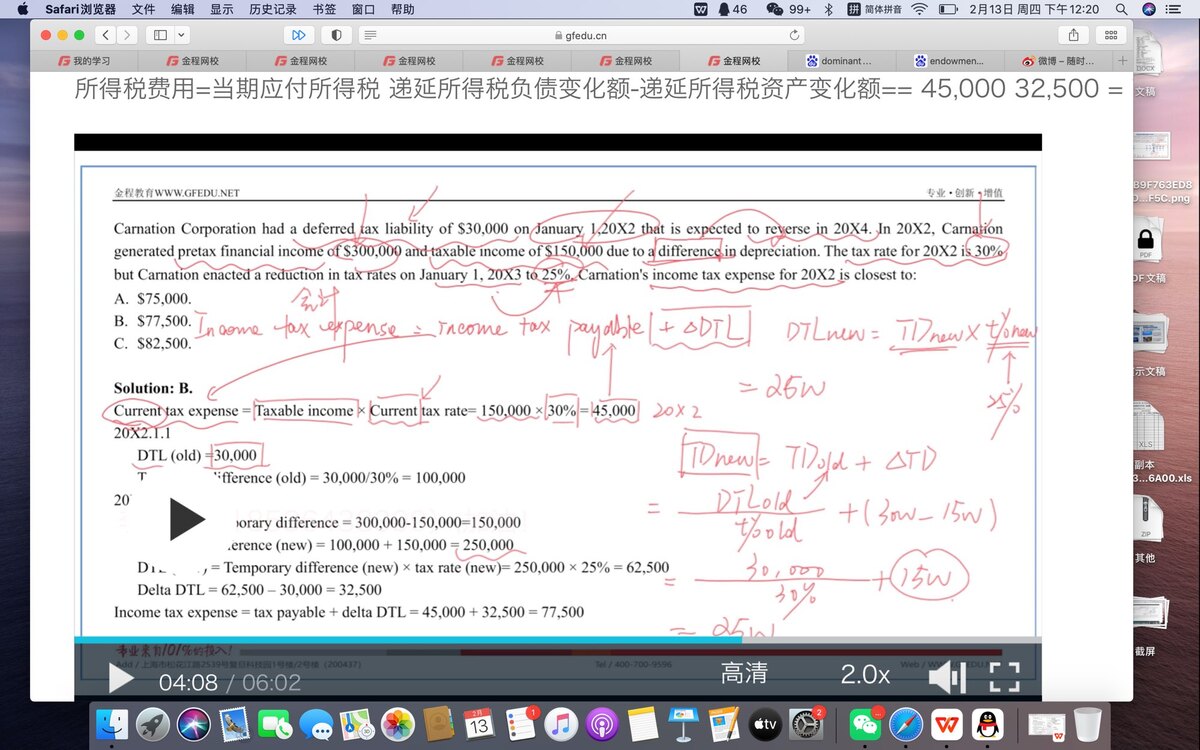 Safari浏览器 文件 编辑 显示 历史记录 书签 窗口 帮助 46 99+ 简体拼音 2月13日 周四 下午12:20
gfedu.cn
我的学习 金程网校 金程网校 金程网校 金程网校 金程网校 金程网校 dominant... endowmen... 微博 – 随时...
所得税费用=当期应付所得税 递延所得税负债变化额-递延所得税资产变化额== 45,000 32,500 =
金程教育WWW.GFEDU.NET 专业·创新·增值
Carnation Corporation had a deferred tax liability of $30,000 on January 1,20X2 that is expected to reverse in 20X4. In 20X2, Carnation
generated pretax financial income of $300,000 and taxable income of $150,000 due to a difference in depreciation. The tax rate for 20X2 is 30%
but Carnation enacted a reduction in tax rates on January 1, 20X3 to 25%. Carnation's income tax expense for 20X2 is closest to:
A. $75,000.
会计
B. $77,500.
Income tax expense = income tax payable + ΔDTL
DTLnew = TDnew × t%new
C. $82,500.
= 25W
25%
Solution: B.
Current tax expense = Taxable income × Current tax rate= 150,000 × 30% = 45,000 20X2
20X2.1.1
DTL (old) =30,000
TDnew = TDold + ΔTD
ifference (old) = 30,000/30% = 100,000
20
= DTLold / t%old + (30W - 15W)
porary difference = 300,000-150,000=150,000
erence (new) = 100,000 + 150,000 = 250,000
= Temporary difference (new) × tax rate (new)= 250,000 × 25% = 62,500
= 30,000 / 30% + 15W
Delta DTL = 62,500 – 30,000 = 32,500
Income tax expense = tax payable + delta DTL = 45,000 + 32,500 = 77,500
= 25W
专业来自101%的投入!
Add / 上海市松花江路2539号复旦科技园1号楼/2号楼 (200437) Tel / 400-700-9596 Web / WWW.GFEDU.NET
04:08 / 06:02 高清 2.0x
文稿
B9F763ED8
D...F5C.png
PDF
DF文稿
示文稿
XLS
副本
3...6A00.xls
ZIP
其他
截屏
2月
13
1
tv
2